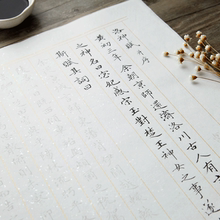 洛神賦并序
黃初三年余朝京師還濟洛川古人有
之神名曰宓妃感宋玉對楚王神女之事遂
斯賦其詞曰